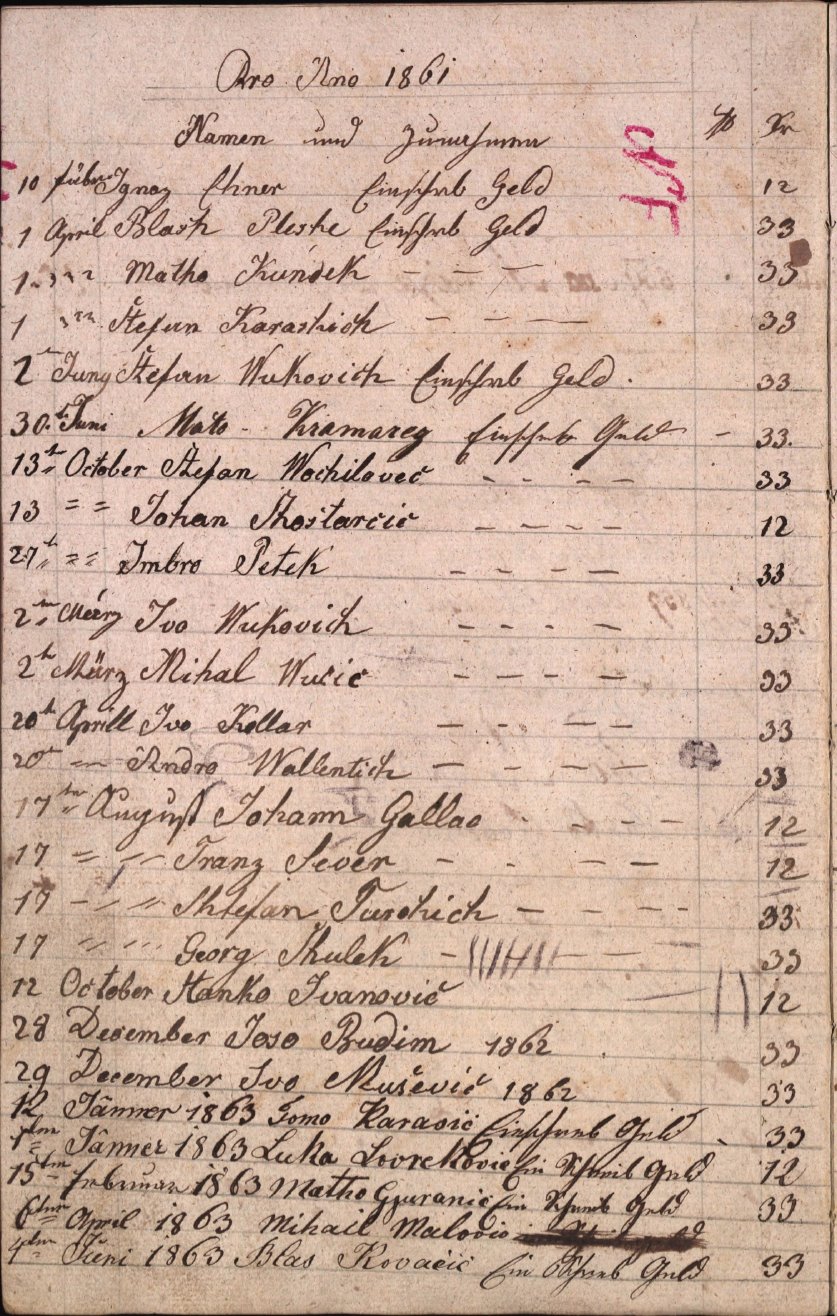 Pro Ano 1861
Namen und Zunahmen f Kr
10 Ignaz Einschrb Geld 12
1 April Blash Pleshe Einschrb Geld 33
1 Matho Kundek 33
1 Štefan Karashich 33
2 Juny Štefan Wukovich Einschrb Geld 33
30 Juni Mato Kramareg Einschrb Geld 33
13 October Štefan Wochilovec 33
13 Johan 12
27 Imbro Petek 33
2 März Ivo Wukovich 33
2 März Mihal Wučic 33
20 Aprill Ivo Kollar 33
20 Andro Wallentich 33
17 August Johann Gallao 12
17 Franz Sever 12
17 Shtefan Turchich 33
17 Georg Skulek 33
12 October Stanko Ivanović 12
28 December Joso Budim 1862 33
29 December Ivo Mušević 1862 33
12 Jänner 1863 Tomo Karasič Einschreb Geld 33
1 Jänner 1863 Luka Lovreković Ein Schreib Geld 12
15 Februar 1863 Matho Gjuranić Ein Schreib Geld 33
6 April 1863 Mihail Malović
4 Juni 1863 Blas Kovačić Ein Schreb Geld 33